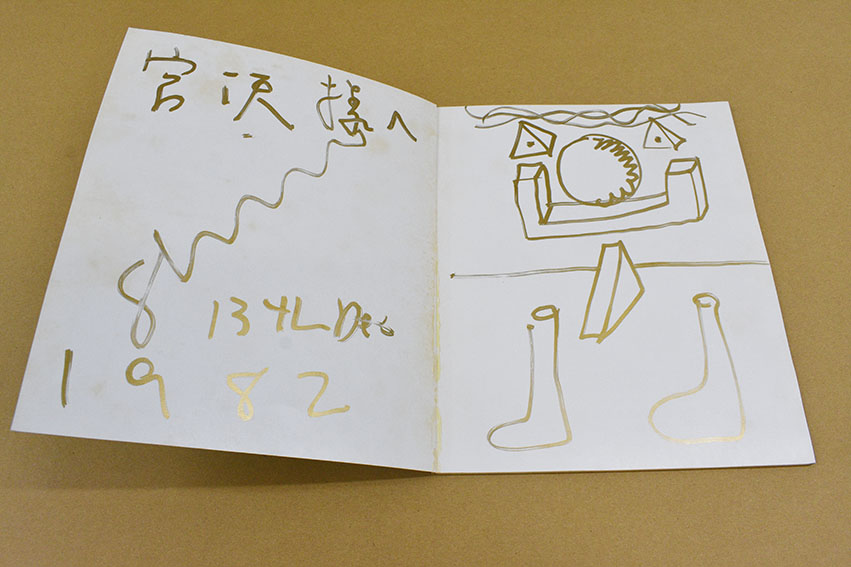 宮沢様へ
13 4L Dec
1982